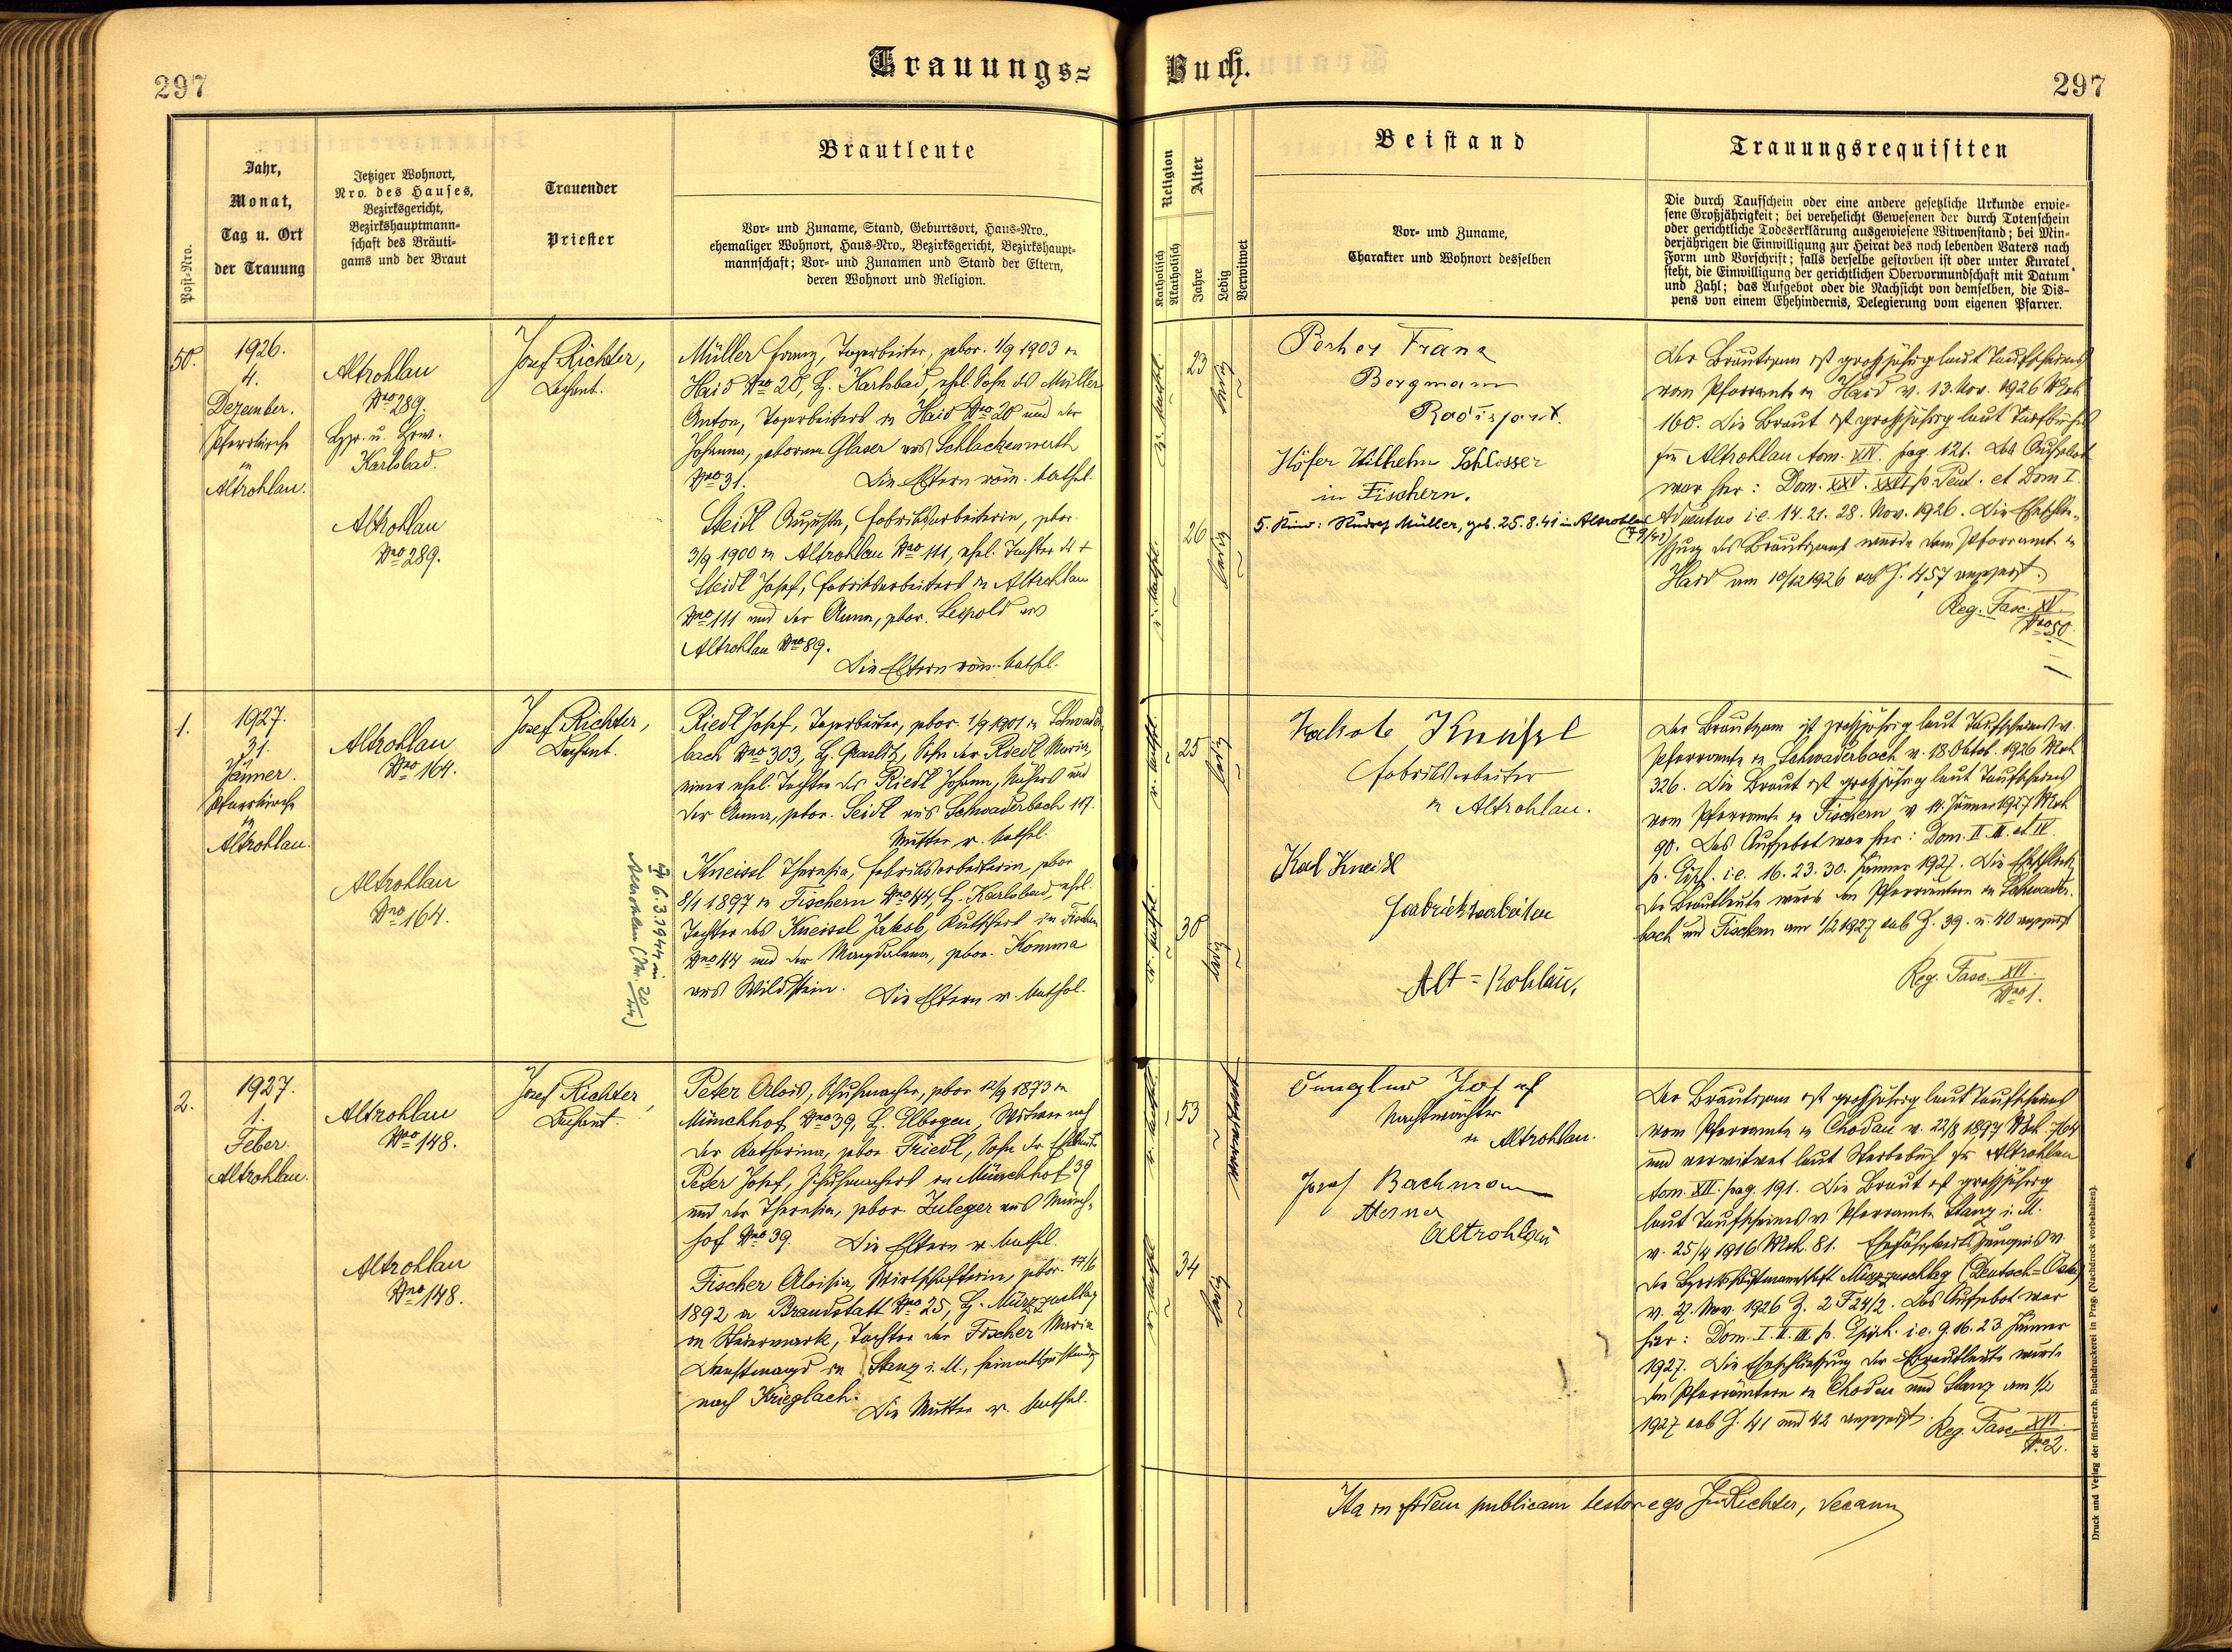 297
Trauungs=
Buch.
297
Post-Nro.
Jahr,
Monat,
Tag u. Ort
der Trauung
Jetziger Wohnort,
Nro. des Hauses,
Bezirksgericht,
Bezirkshauptmann-
schaft des Bräuti-
gams und der Braut
Trauender
Priester
Brautleute
Vor- und Zuname, Stand, Geburtsort, Haus-Nro.,
ehemaliger Wohnort, Haus-Nro., Bezirksgericht, Bezirkshaupt-
mannschaft; Vor- und Zunamen und Stand der Eltern,
deren Wohnort und Religion.
Religion
Katholisch
Akatholisch
Alter
Jahre
Ledig
Verwitwet
Beistand
Vor- und Zuname,
Charakter und Wohnort desselben
Trauungsrequisiten
Die durch Taufschein oder eine andere gesetzliche Urkunde erwie-
sene Großjährigkeit; bei verehelicht Gewesenen der durch Totenschein
oder gerichtliche Todeserklärung ausgewiesene Witwenstand; bei Min-
derjährigen die Einwilligung zur Heirat des noch lebenden Vaters nach
Form und Vorschrift; falls derselbe gestorben ist oder unter Kuratel
steht, die Einwilligung der gerichtlichen Obervormundschaft mit Datum
und Zahl; das Aufgebot oder die Nachsicht von demselben, die Dis-
pens von einem Ehehindernis, Delegierung vom eigenen Pfarrer.
50.
1926.
4.
Dezember.
Pfarrkirche
in
Altrohlau.
Altrohlau
Nro 289.
Karlsbad.
Altrohlau
Nro 289.
Josef Richter,
Dechant.
Müller Franz, Tagarbeiter, gebor. 1/9 1903 in
Haid Nro 20, B. Karlsbad, ehel. Sohn des Müller
Anton, Tagarbeiters in Haid Nro 20 und der
Johanna, geborene Glaser aus Schlackenwerth
Nro 31. Die Eltern röm. kathol.
Steidl Augusta, Fabriksarbeiterin, gebor.
3/9 1900 in Altrohlau Nro 111, ehel. Tochter des +
Steidl Josef, Fabriksarbeiters in Altrohlau
Nro 111 und der Anna, gebor. Leopold aus
Altrohlau Nro 89.
Die Eltern röm. kathol.
r. kathol.
23
ledig
r. kathol.
26
ledig
Franz
Bergmann
Höfer Wilhelm Schlosser
in Fischern.
5. Kind: Rudolf Müller, geb. 25.8.41 in Altrohlau
(79/41)
Der Bräutigam ist großjährig laut Taufscheines
vom Pfarramte in Haid v. 13. Nov. 1926 Mch
160. Die Braut ist großjährig laut Taufbuches
für Altrohlau tom. XIV. pag. 121. Das Aufgebot
war hier: Dom. XXV. XXVI p. Pent. et Dom I.
Adventus i.e. 14. 21. 28. Nov. 1926. Die Eheschlie-
ßung des Bräutigams wurde dem Pfarramte in
Haid am 10/12 1926 sub Z. 457 angezeigt.
Reg. Fasc. XV.
Nro 50.
1.
1927.
31.
Jänner.
Pfarrkirche
in
Altrohlau.
Altrohlau
Nro 164.
Altrohlau
Nro 164.
Josef Richter,
Dechant.
Riedl Josef, Tagarbeiter, gebor. 1/9 1901 in Schwader-
bach Nro 303, B. Graslitz, Sohn der Riedl Maria,
einer ehel. Tochter des Riedl Johann, und
der Anna, gebor. Seidl aus Schwaderbach 117.
Mutter r. kathol.
Kneissl Theresia, Fabriksarbeiterin, gebor
8/1 1897 in Fischern Nro 44, B. Karlsbad, ehel.
Tochter des Kneissl Jakob, Kutschers in Fischern
Nro 44 und der Magdalena, gebor. Komma
aus Wildstein. Die Eltern r. kathol.
6.3.1944 in
Altrohlau (Nr. 20/44)
r. kathol.
25
ledig
r. kathol.
30
ledig
Jakob Kneißl
Fabriksarbeiter
in Altrohlau.
Karl Kneißl
Fabriksarbeiter
Alt=Rohlau.
Der Bräutigam ist großjährig laut Taufscheines v.
Pfarramte in Schwaderbach v. 18. Oktob. 1926 Mch
326. Die Braut ist großjährig laut Taufscheines
vom Pfarramte in Fischern v. 11. Jänner 1927 Mch
90. Das Aufgebot war hier: Dom. II. III. et IV.
p. Epiph. i.e. 16. 23. 30. Jänner 1927. Die Eheschließ.
der Brautleute wurde den Pfarrämtern in Schwader-
bach und Fischern am 1/2 1927 sub Z. 39. u. 40 angezeigt
Reg. Fasc. XVI.
Nro 1.
2.
1927.
1.
Feber.
Altrohlau.
Altrohlau
Nro 148.
Altrohlau
Nro 148.
Josef Richter,
Dechant.
Peter Alois, Schuhmacher, gebor 12/9 1873 in
Münchhof Nro 39, B. Elbogen, Witwer nach
der Katharina, gebor. Friedl, Sohn der Eheleute
Peter Josef, Schuhmachers in Münchhof 39
und der Theresia, gebor. Zuleger aus Münch-
hof Nro 39. Die Eltern r. kathol.
Fischer Aloisia, Wirtschafterin, gebor. 17/6
1892 in Brandstatt Nro 25, B. Mürzzuschlag
in Steiermark, Tochter der Fischer Maria
Dienstmagd in Stanz i. M., heimatszuständig
nach Krieglach. Die Mutter r. kathol.
r. kathol.
53
verwitwet
r. kathol.
34
ledig
Josef
Nachtwächter
in Altrohlau.
Josef Bachmann
Altrohlau
Der Bräutigam ist großjährig laut Taufscheines
vom Pfarramte in Chodau v. 22/8 1897 Mch. 764
und verwitwet laut Sterbebuch für Altrohlau
tom. XII. pag. 191. Die Braut ist großjährig
laut Taufscheines v. Pfarramte Stanz i. M.
v. 25/4 1916 Mch. 81. Ehefähigkeitszeugnis v.
der Bezirkshauptmannschaft Mürzzuschlag (Deutsch=Östr.)
v. 27. Nov. 1926 Z. 2 F 24/2. Das Aufgebot war
hier: Dom. I. II. III. p. Epiph. i.e. 9. 16. 23. Jänner
1927. Die Eheschließung der Brautleute wurde
den Pfarrämtern in Chodau und Stanz am 1/2
1927 sub Z. 41 und 42 angezeigt. Reg. Fasc. XVI.
Nro 2.
Ita in fidem publicam testor ego Jos Richter, Decann
Druck und Verlag der fürst-erzb. Buchdruckerei in Prag. (Nachdruck vorbehalten).